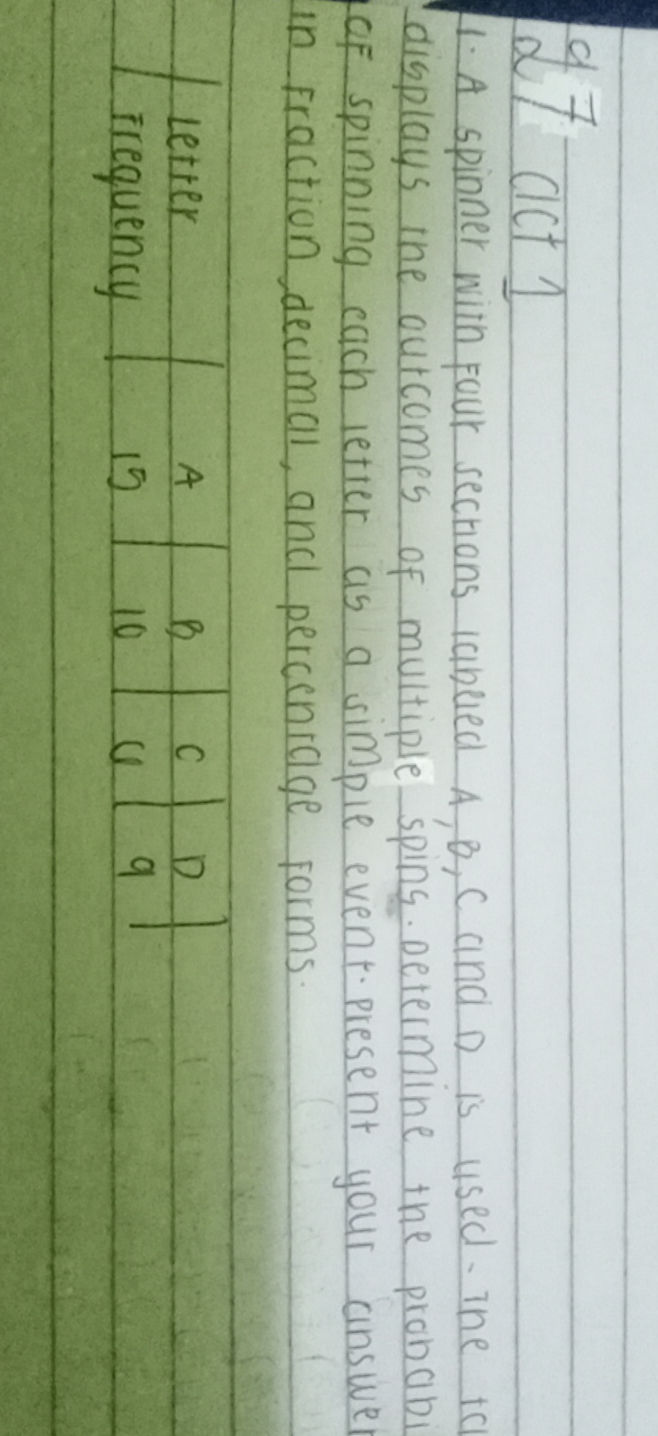 q
2 7 act 1
1. A spinner with four sections labeled A, B, C and D is used. The ta
displays the outcomes of multiple spins. Determine the probabi
of spinning each letter as a simple event. Present your answer
in fraction, decimal, and percentage forms.
Letter A B C D
Frequency 15 10 9